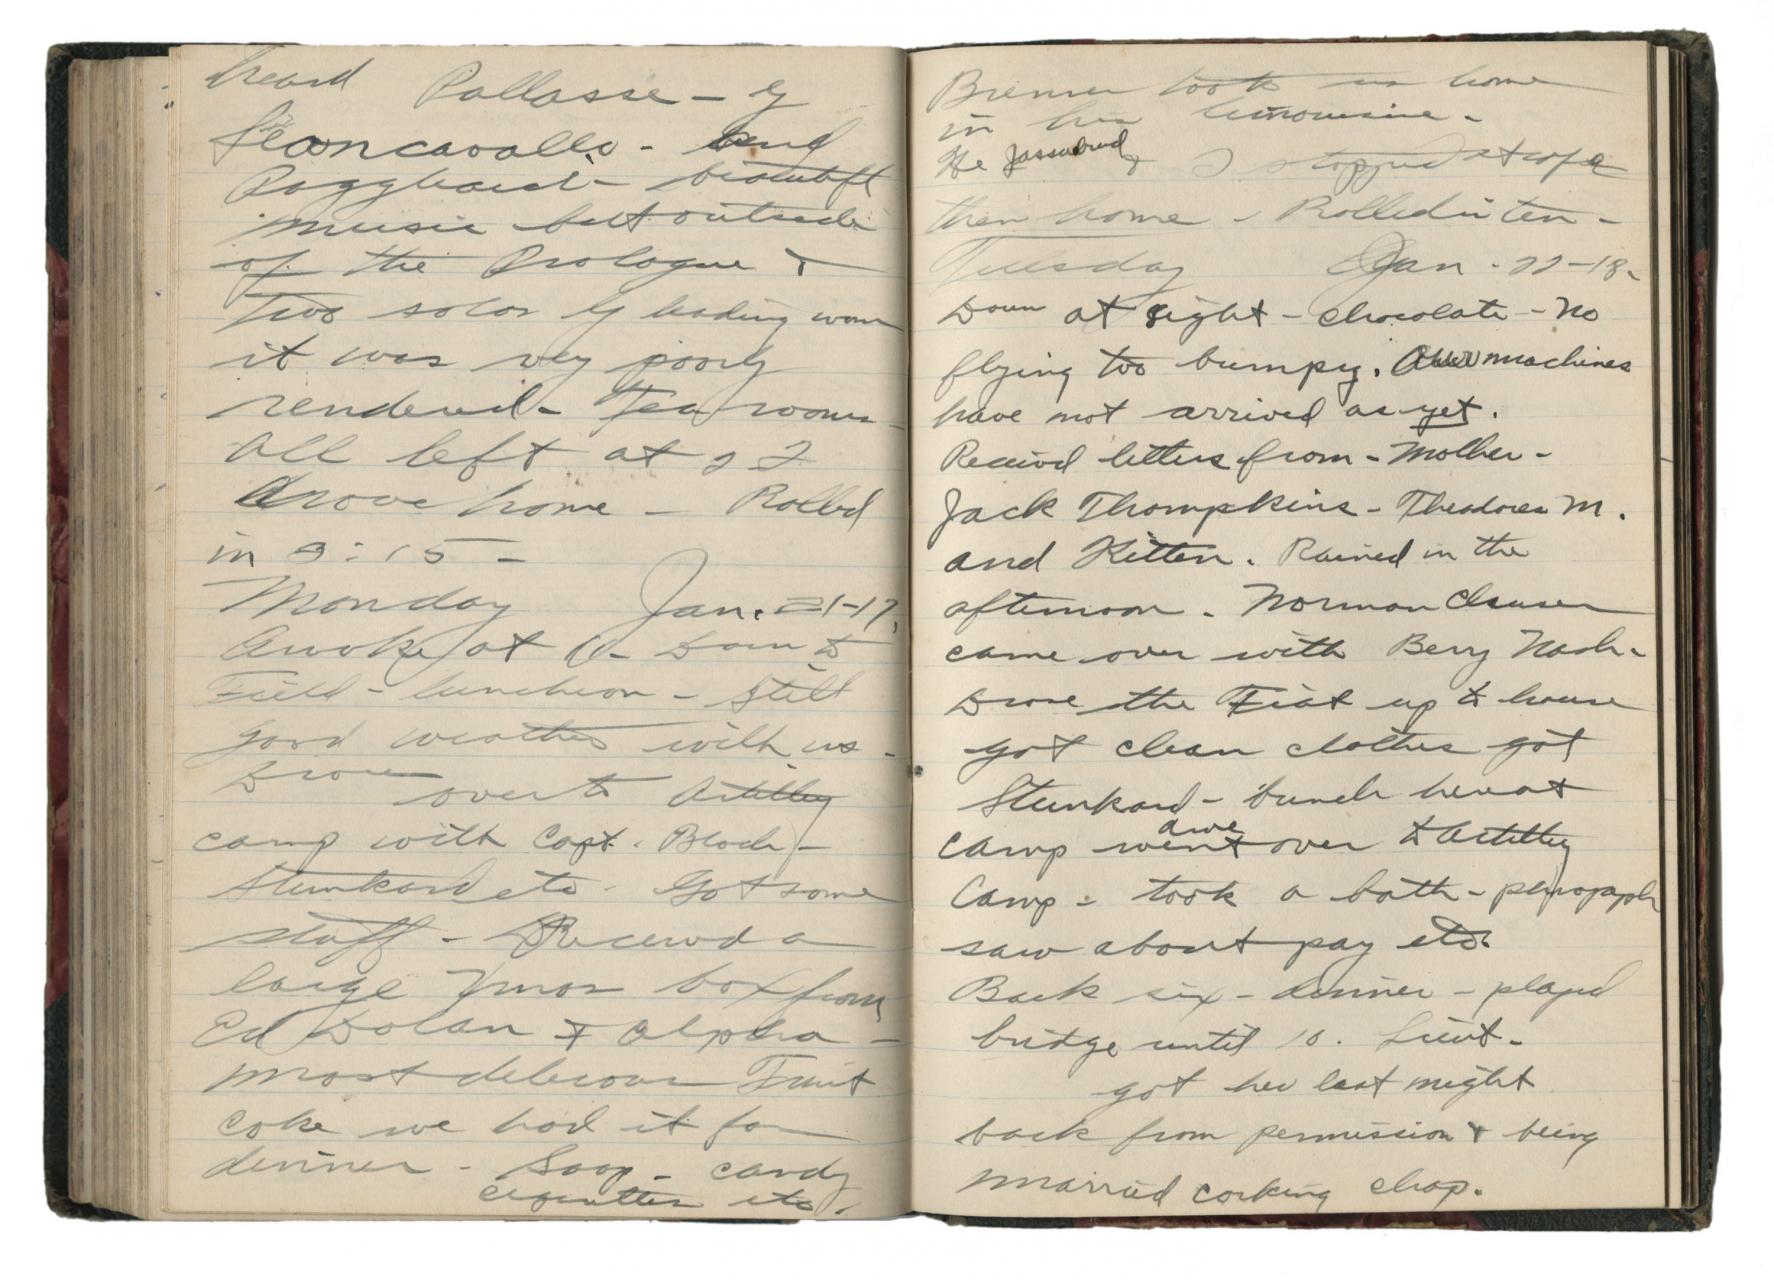 heard Pallasse - by
Leoncavallo - and
music but outside
of the Prologue &
Two solos by leading
it was very poorly
rendered - Tea rooms
All left at
Drove home - Rolled
in 3:15 -
Monday Jan. 21-17,
Awoke at Down to
Field - luncheon - still
good weather with us -
Drove
over to Artillery
camp with Capt. Block -
Stunkard etc - Got some
stuff - Received a
large Xmas box from
Ed Dolan & Alpha -
most delicious Fruit
cake we had it for
dinner - Soap - candy
cigarettes etc.
Bremer took us home
in his limousine -
He & I stopped at cafe
then home - Rolled in ten -
Tuesday Jan - 22-18.
Down at eight - chocolate - No
flying too bumpy. Our machines
have not arrived as yet.
Received letters from - Mother -
Jack Thompkins - Theodores M.
and Kitten. Rained in the
afternoon. Norman
came over with Berry Nash -
Drove the Fiat up to house
got clean clothes got
Stunkard - bunch here at
camp went over to Artillery
Camp - took a bath -
saw about pay etc.
Back six - dinner - played
bridge until 10. Lieut -
got here last night
back from permission & being
married corking chap.